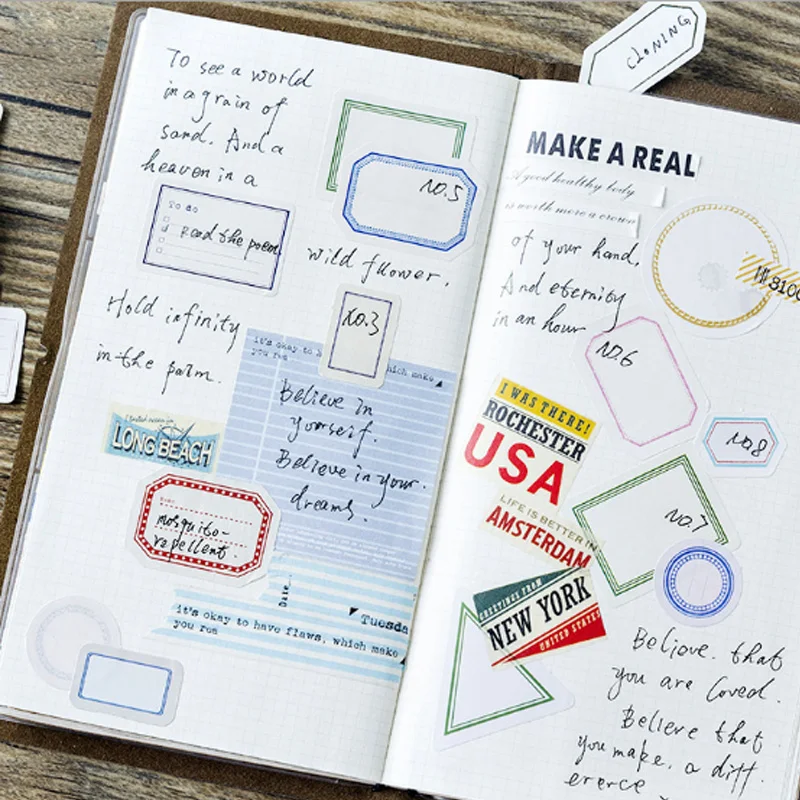 To see a world
in a grain of
sand. And a
heaven in a
NO.5
To do
Read the poem
wild flower.
Hold infinity
in the parm.
NO.3
it's okay to h
which make
you rea
Believe in
yourself.
Believe in your
dreams.
LONG BEACH
mosquito-
repellent
Date
Tuesda
it's okay to have flaws, which make
you rea
CLONING
MAKE A REAL
A good healthy body
is worth more a crown
of your hand,
And eternity
in an hour
NO.6
I WAS THERE!
ROCHESTER
USA
NO.8
LIFE IS BETTER IN
AMSTERDAM
NO.7
GREETINGS FROM
NEW YORK
UNITED STATES
Believe that
you are loved.
Believe that
you make a diff
erence